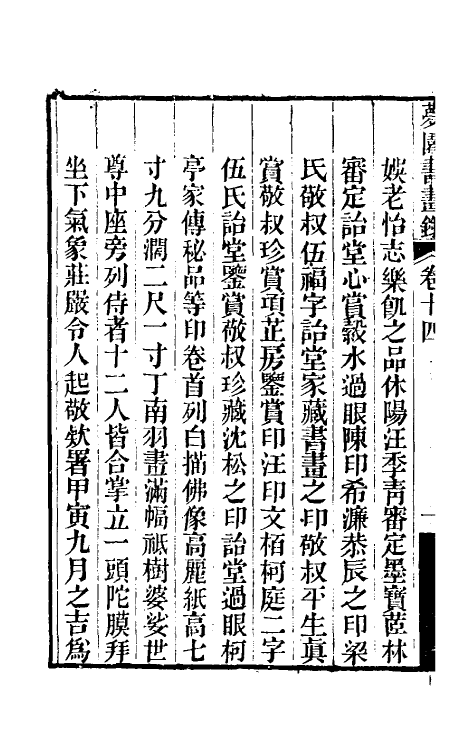 夢園書畫錄 卷十四 一
娛老怡志樂飢之品休陽汪季靑審定墨寶蓙林
審定詒堂心賞縠水過眼陳印希濂恭辰之印梁
氏敬叔伍福字詒堂家藏書畫之印敬叔平生眞
賞敬叔珍賞項芷房鑒賞印汪印文栢柯庭二字
伍氏詒堂鑒賞敬叔珍藏沈松之印詒堂過眼柯
亭家傳秘品等印卷首列白描佛像高麗紙高七
寸九分濶二尺一寸丁南羽畫滿幅祇樹婆娑世
尊中座旁列侍者十二人皆合掌立一頭陀膜拜
坐下氣象莊嚴令人起敬欵署甲寅九月之吉爲